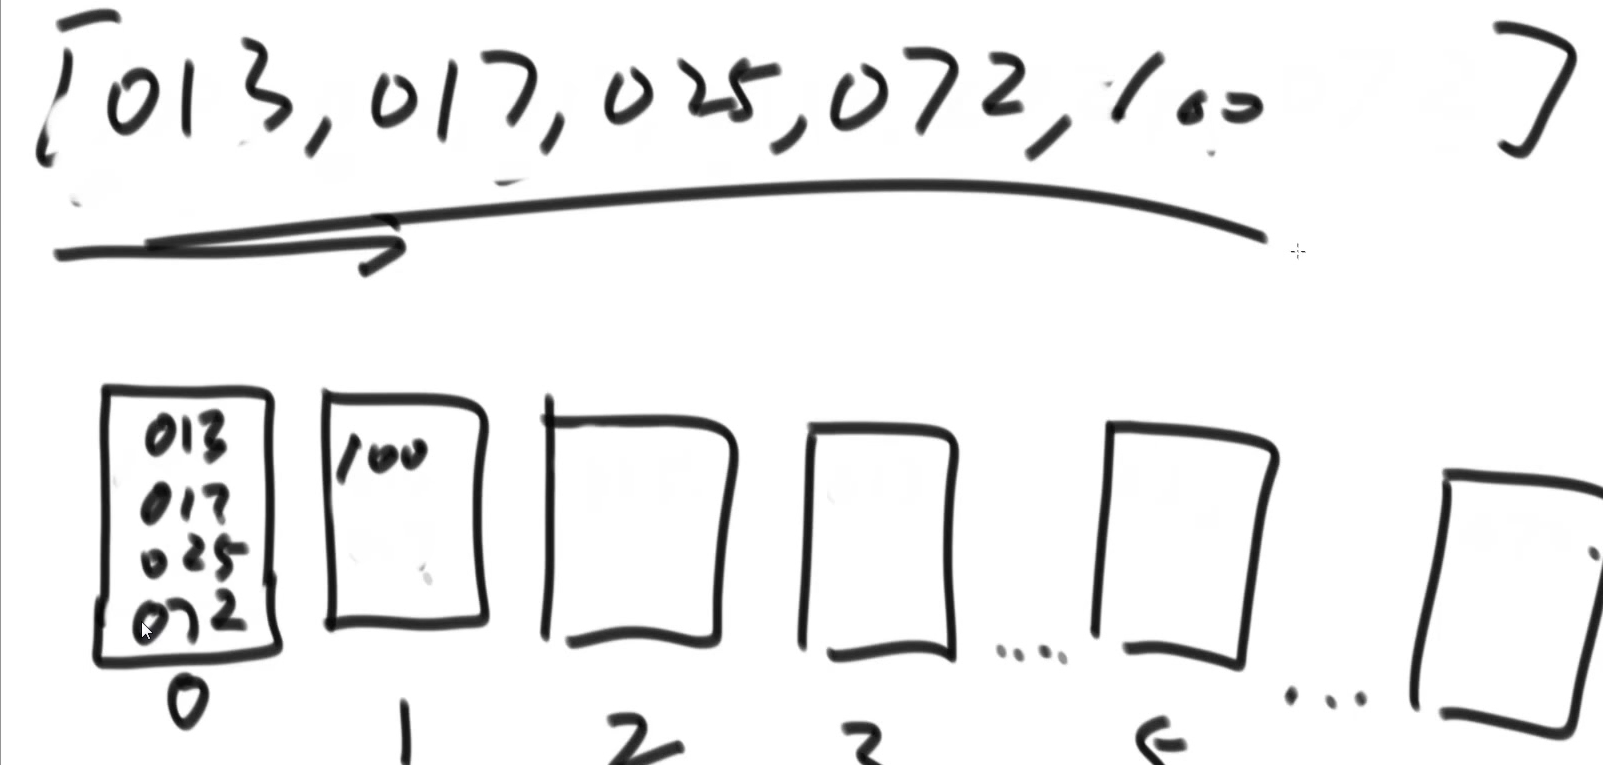 [013, 017, 025, 072, 100 ]
013
017
025
072
100
....
...
0 1 2 3 5